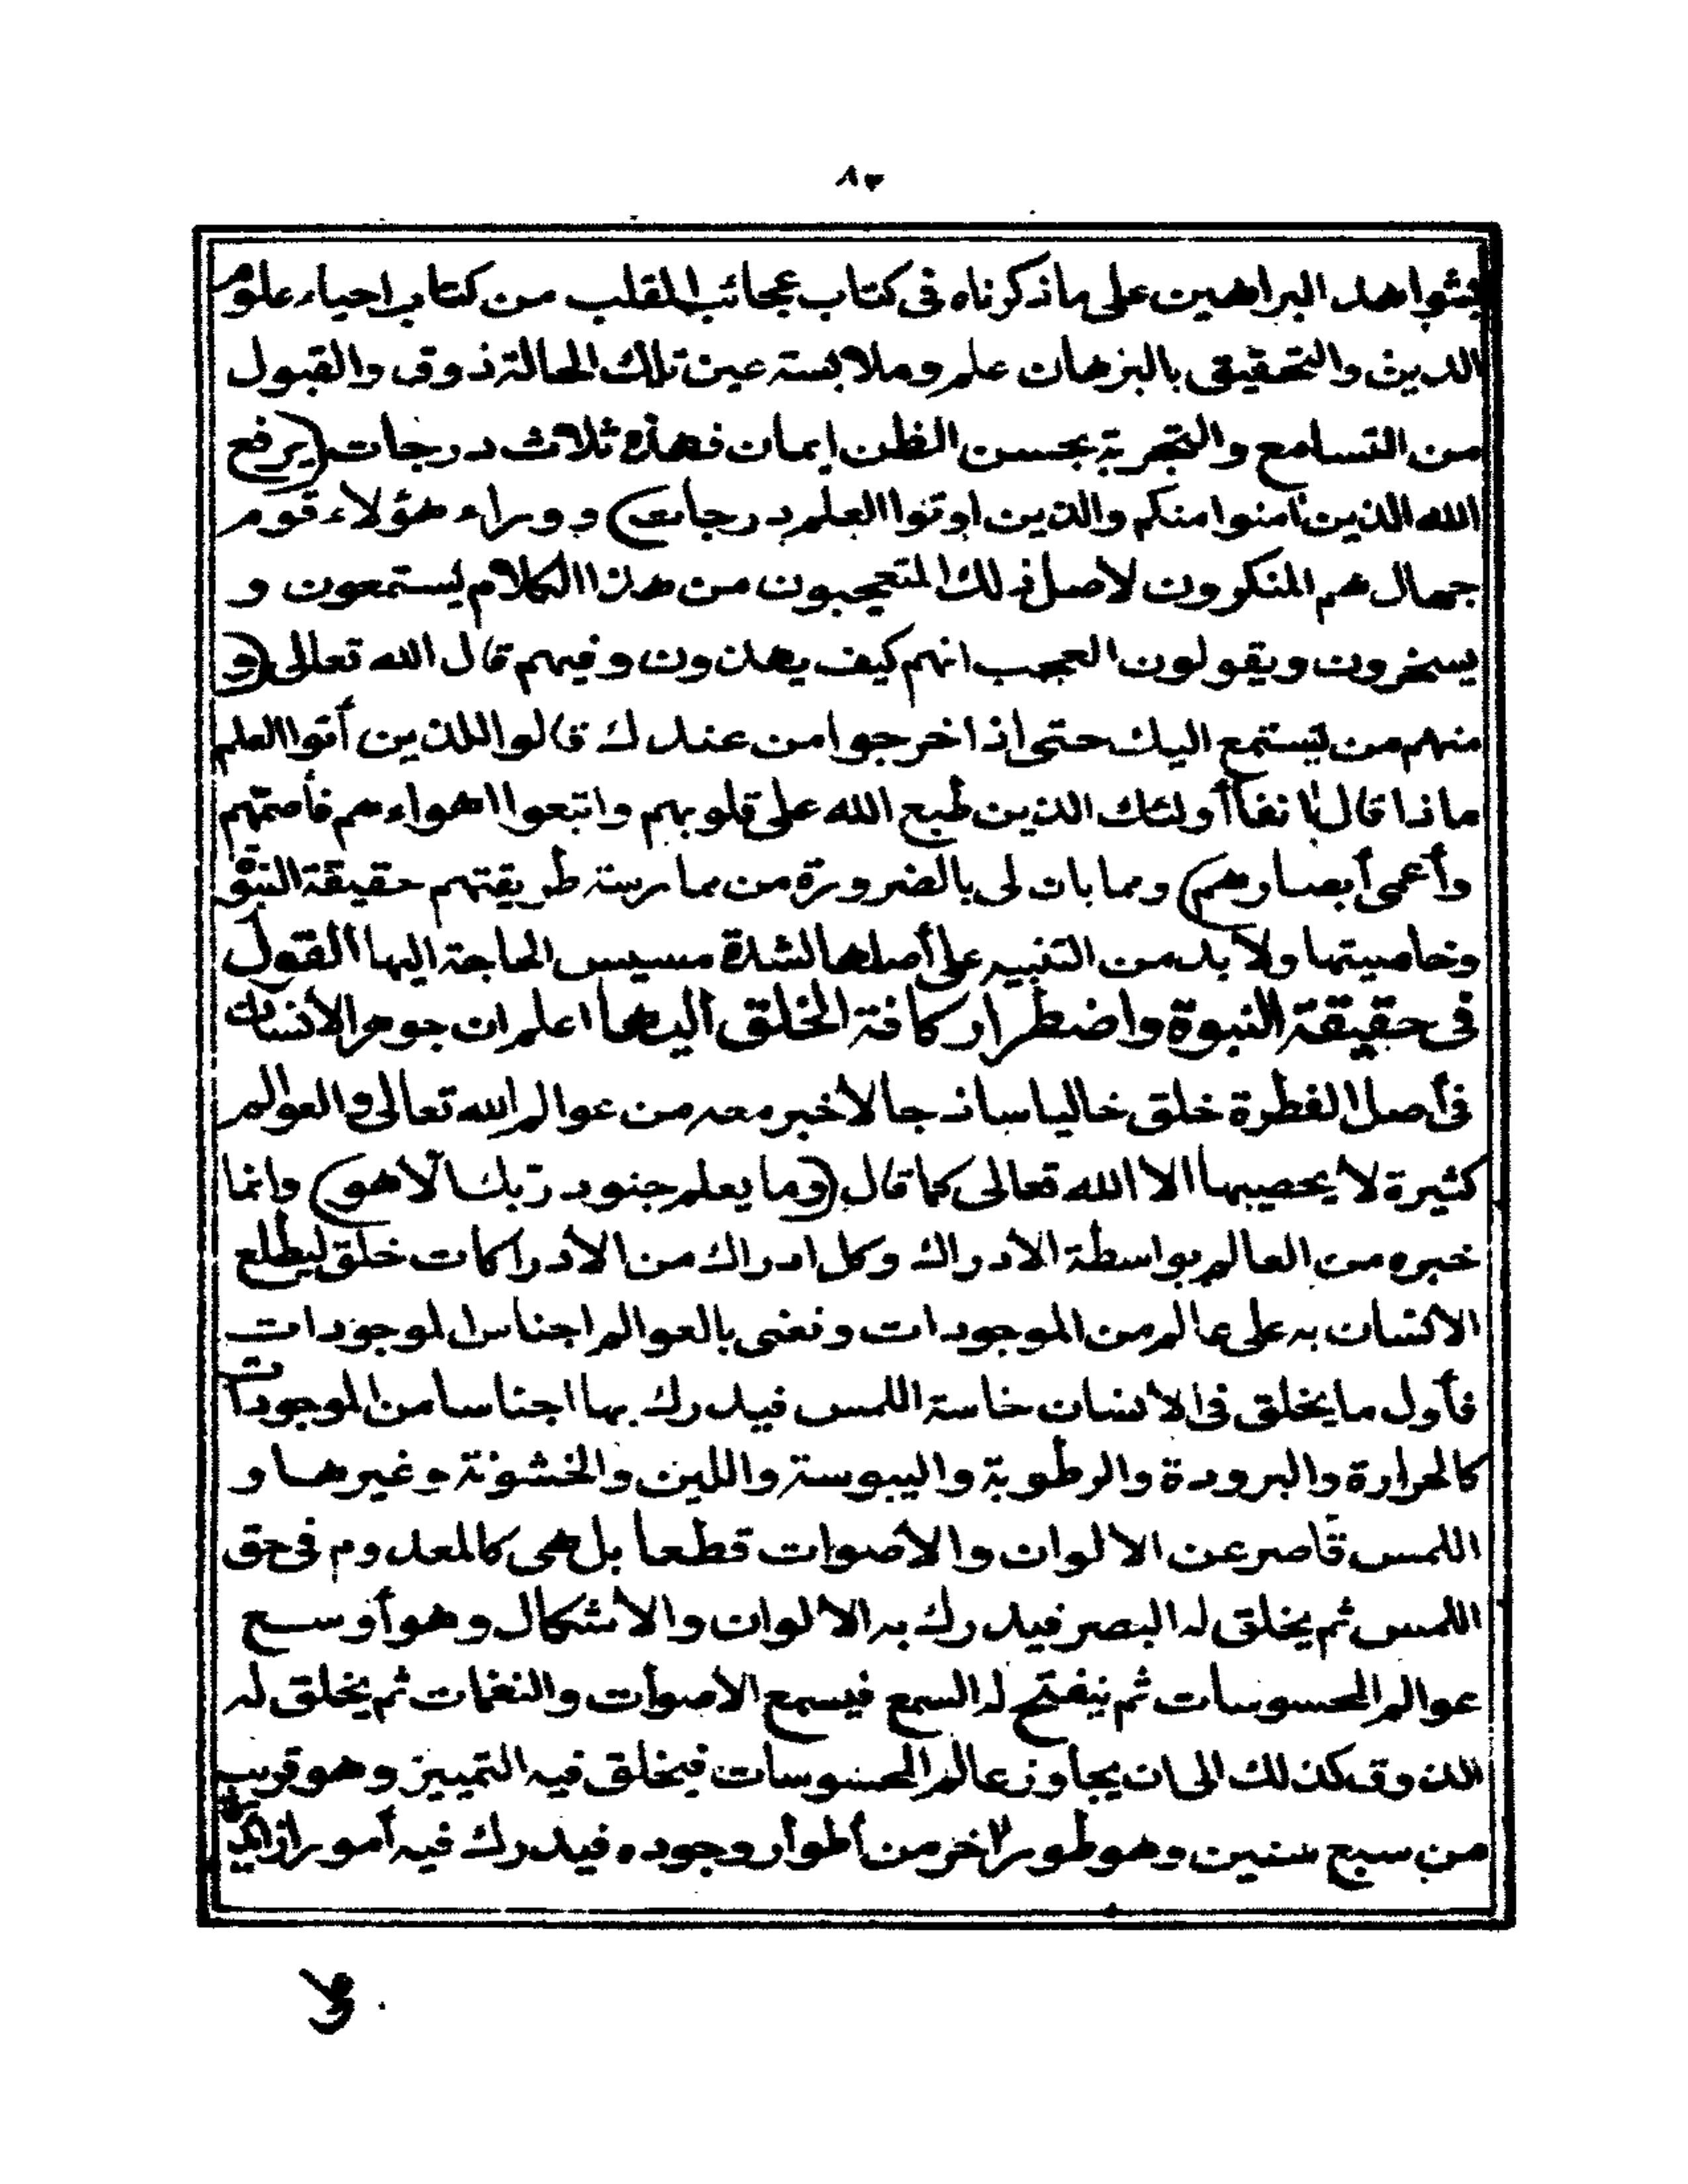 ٨٣
بشواهد البراهين على ما ذكرناه فى كتاب عجائب القلب من كتاب احياء علوم
الدين والتحقيقى بالبرهان علم وملابسة عين تلك الحالة ذوق والقبول
من التسامع والتجربة بحسن الظن إيمان فهذه ثلاث درجات (يرفع
الله الذين آمنوا منكم والذين اوتوا العلم درجات) ووراء هؤلاء قوم
جهال هم المنكرون لأصل ذلك المتعجبون من هذا الكلام يستمعون و
يسخرون ويقولون العجب انهم كيف يهذون وفيهم قال الله تعالى (و
منهم من يستمع اليك حتى اذا خرجوا من عندك قالوا للذين أتوا العلم
ماذا قال آنفاً أولئك الذين طبع الله على قلوبهم واتبعوا اهواءهم فأصمّهم
وأعمى أبصارهم) ومما بان لى بالضرورة من ممارسة طريقتهم حقيقة النبوّة
وخاصيتها ولا بد من التنبيه على أصلها لشدة مسيس الحاجة اليها القول
فى حقيقة النبوة واضطرار كافة الخلق اليها اعلم ان جوهر الأنسان
فى أصل الفطرة خلق خاليا ساذجا لا خبر معه من عوالم الله تعالى والعوالم
كثيرة لا يحصيها الا الله تعالى كما قال (وما يعلم جنود ربّك الّا هو) وانما
خبره من العالم بواسطة الأدراك وكل ادراك من الأدراكات خلق ليطلع
الأنسان به على عالم من الموجودات ونعنى بالعوالم اجناس الموجودات
فأول ما يخلق فى الأنسان خاسة اللمس فيدرك بها اجناسا من الموجودات
كالحرارة والبرودة والرطوبة واليبوسة واللين والخشونة وغيرها و
اللمس قاصر عن الالوان والأصوات قطعا بل هى كالمعدوم فى حق
اللمس ثم يخلق له البصر فيدرك به الالوان والأشكال وهو أوسع
عوالم المحسوسات ثم ينفتح له السمع فيسمع الأصوات والنغمات ثم يخلق له
الذوق كذلك الى ان يجاوز عالم المحسوسات فيخلق فيه التمييز وهو قريب
من سبع سنين وهو طور آخر من أطوار وجوده فيدرك فيه أمورا زائدة